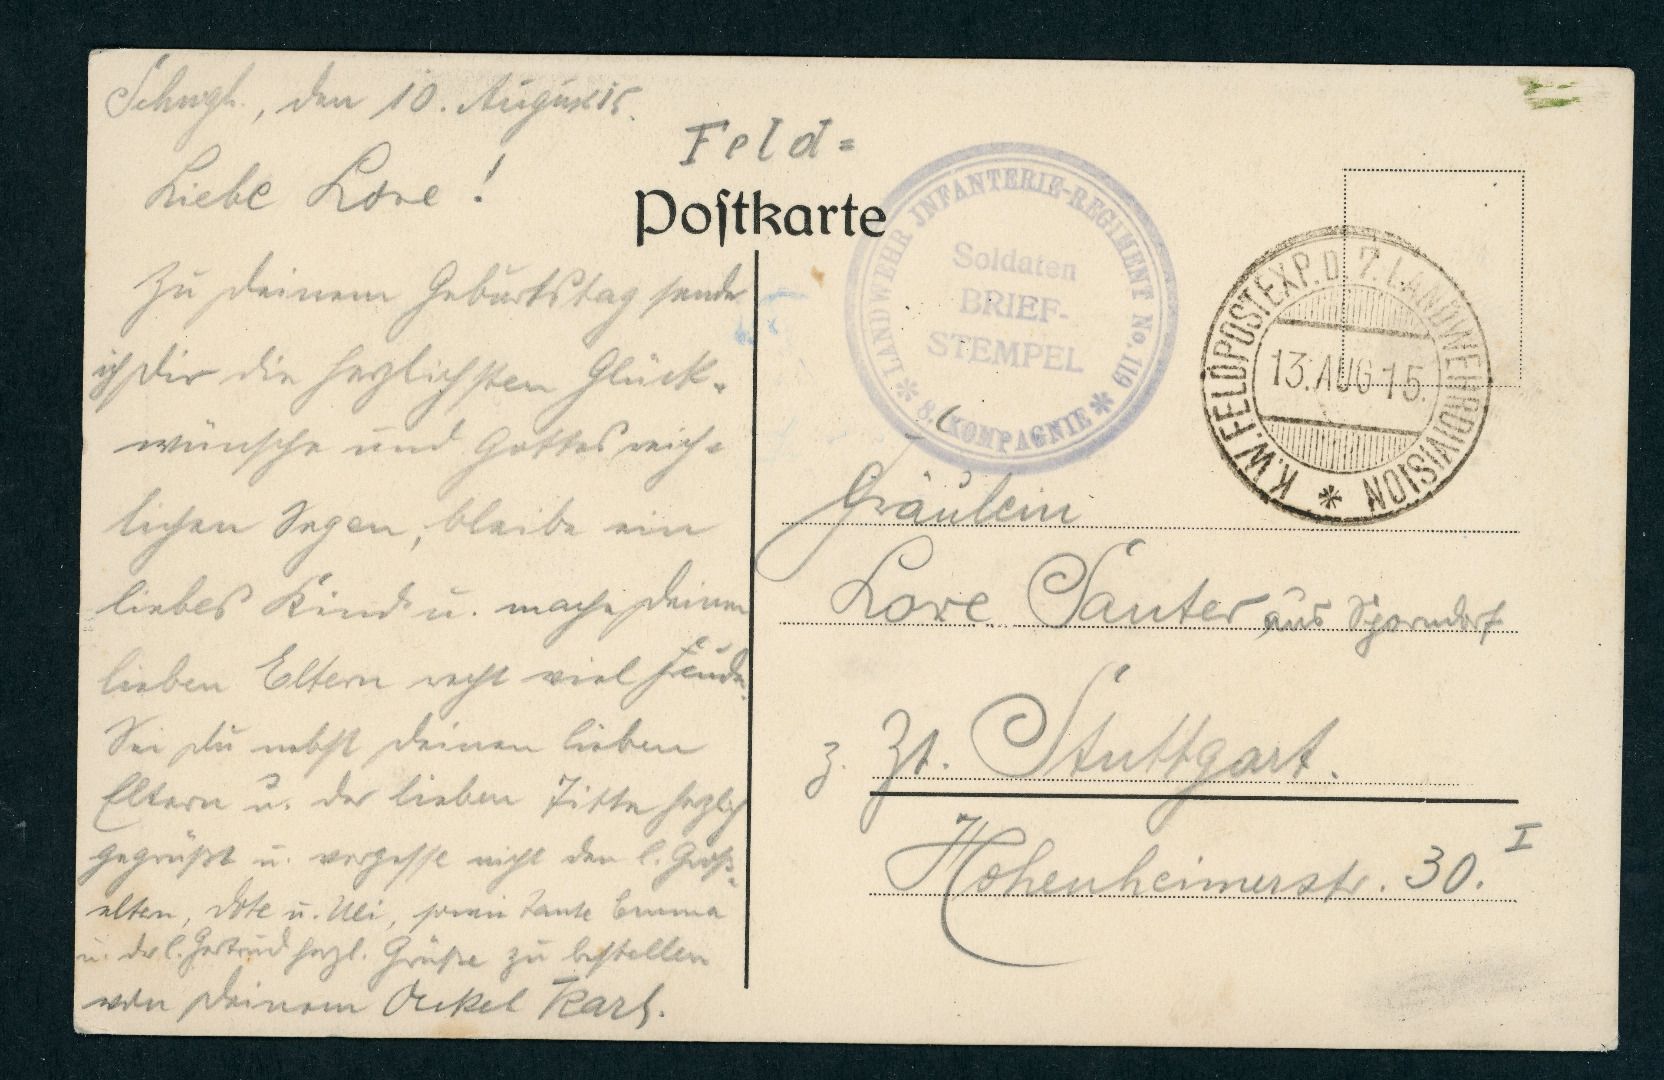 Schwgh., den 10. August 15.
Liebe Lore!
Zu deinem Geburtstag sende
ich dir die herzlichsten Glück-
wünsche und Gottes reich-
lichen Segen, bleibe ein
liebes Kind u. mache deinen
lieben Eltern recht viel Freude.
Sei du nebst deinen lieben
Eltern u. der lieben Titte herzlich
gegrüßt u. vergesse nicht den l. Groß-
elten, Dote u. Uli, sowie Tante Emma
u. der l. Gertrud herzl. Grüße zu bestellen
von deinem Onkel Karl.
Feld=
Postkarte
LANDWEHR INFANTERIE-REGIMENT No. 119
Soldaten
BRIEF-
STEMPEL
* 8. KOMPAGNIE *
K.W. FELDPOSTEXP. D. 7. LANDWEHRDIVISION *
13. AUG 15.
Fräulein
Lore Sauter aus
z. Zt. Stuttgart.
Hohenheimerstr. 30. I